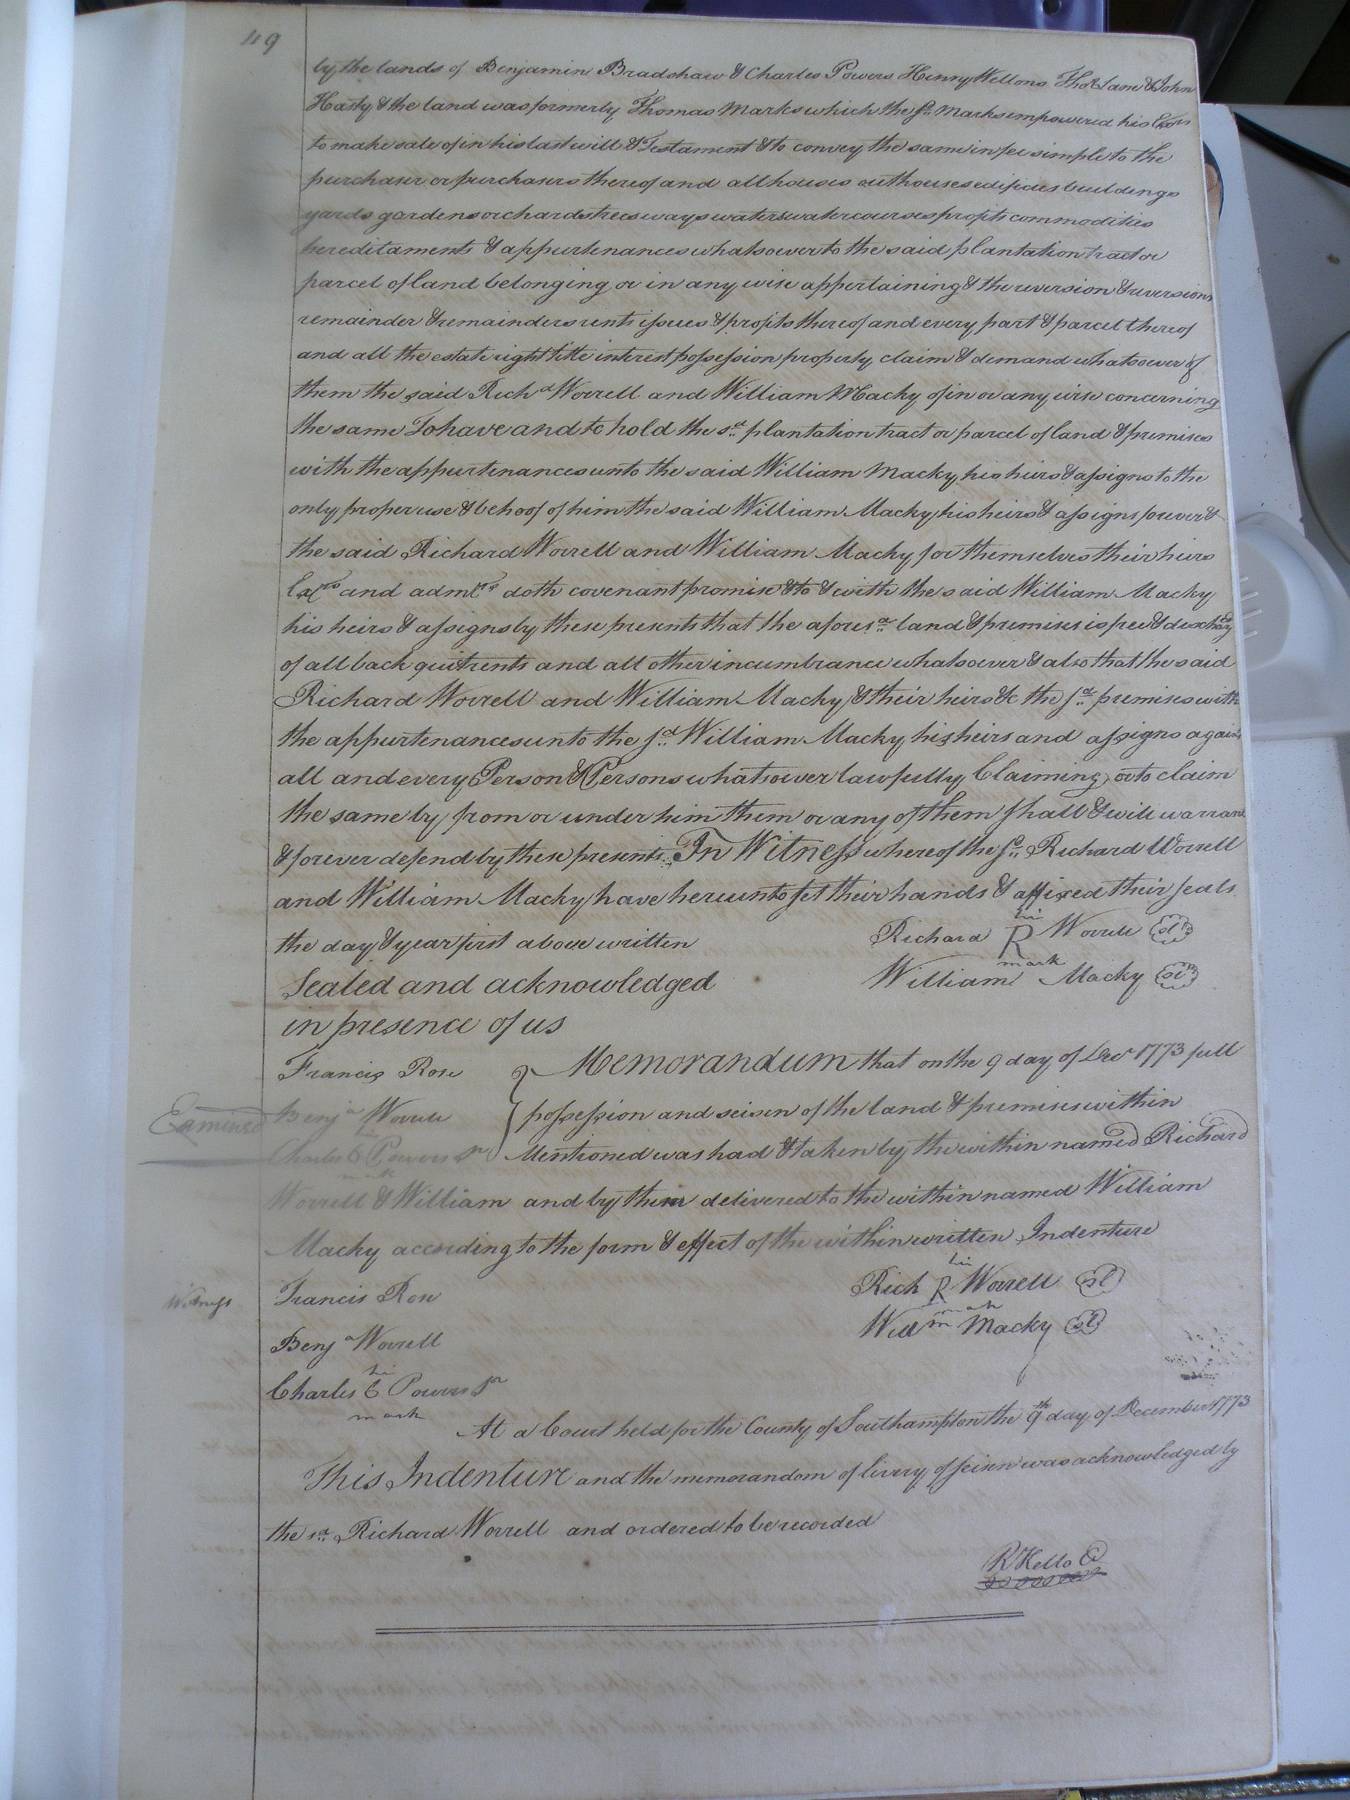 119
by the lands of Benjamin Bradshaw & Charles Powers Henry Wellons Thos Lane & John
Hasty & the land was formerly Thomas Marks which the sd. Marks empowered his Exors
to make sale of in his last will & Testament & to convey the same in fee simple to the
purchaser or purchasers thereof and all houses outhouses edifices buildings
yards gardens orchards trees ways waters watercourses profits commodities
hereditaments & appurtenances whatsoever to the said plantation tract or
parcel of land belonging or in any wise appertaining & the reversion & reversions
remainder & remainders rents issues & profits thereof and every part & parcel thereof
and all the estate right title interest possession property claim & demand whatsoever of
them the said Richd Worrell and William Macky of in or any wise concerning
the same To have and to hold the sd. plantation tract or parcel of land & premises
with the appurtenances unto the said William Macky his heirs & assigns to the
only proper use & behoof of him the said William Macky his heirs & assigns forever &
the said Richard Worrell and William Macky for themselves their heirs
Exrs and admrs doth covenant promise & to & with the said William Macky
his heirs & assigns by these presents that the aforesd. land & premises is free & discharg
of all back quitrents and all other incumbrance whatsoever & also that the said
Richard Worrell and William Macky & their heirs &c the sd. premises with
the appurtenances unto the sd. William Macky his heirs and assigns against
all and every Person & Persons whatsoever lawfully Claiming or to claim
the same by from or under him them or any of them shall & will warrant
& forever defend by these presents. In Witness whereof the sd. Richard Worrell
and William Macky have hereunto set their hands & affixed their seals
the day & year first above written
Richard his R mark Worrell
Sealed and acknowledged
William Macky
in presence of us
Francis Rose
Memorandum that on the 9 day of Decr 1773 full
Examined
Benja Worrell
possession and seisen of the land & premises within
Charles C Powers Sr
Mentioned was had & taken by the within named Richard
Worrell & William and by them delivered to the within named William
Macky according to the form & effect of the within written Indenture
Witness
Francis Rose
Rich his R mark Worrell
Benja Worrell
Willm Macky
Charles his C mark Powers Sr
At a Court held for the County of Southampton the 9th day of December 1773
This Indenture and the memorandom of livery of seisen was acknowledged by
the sd. Richard Worrell and ordered to be recorded
R Kello C